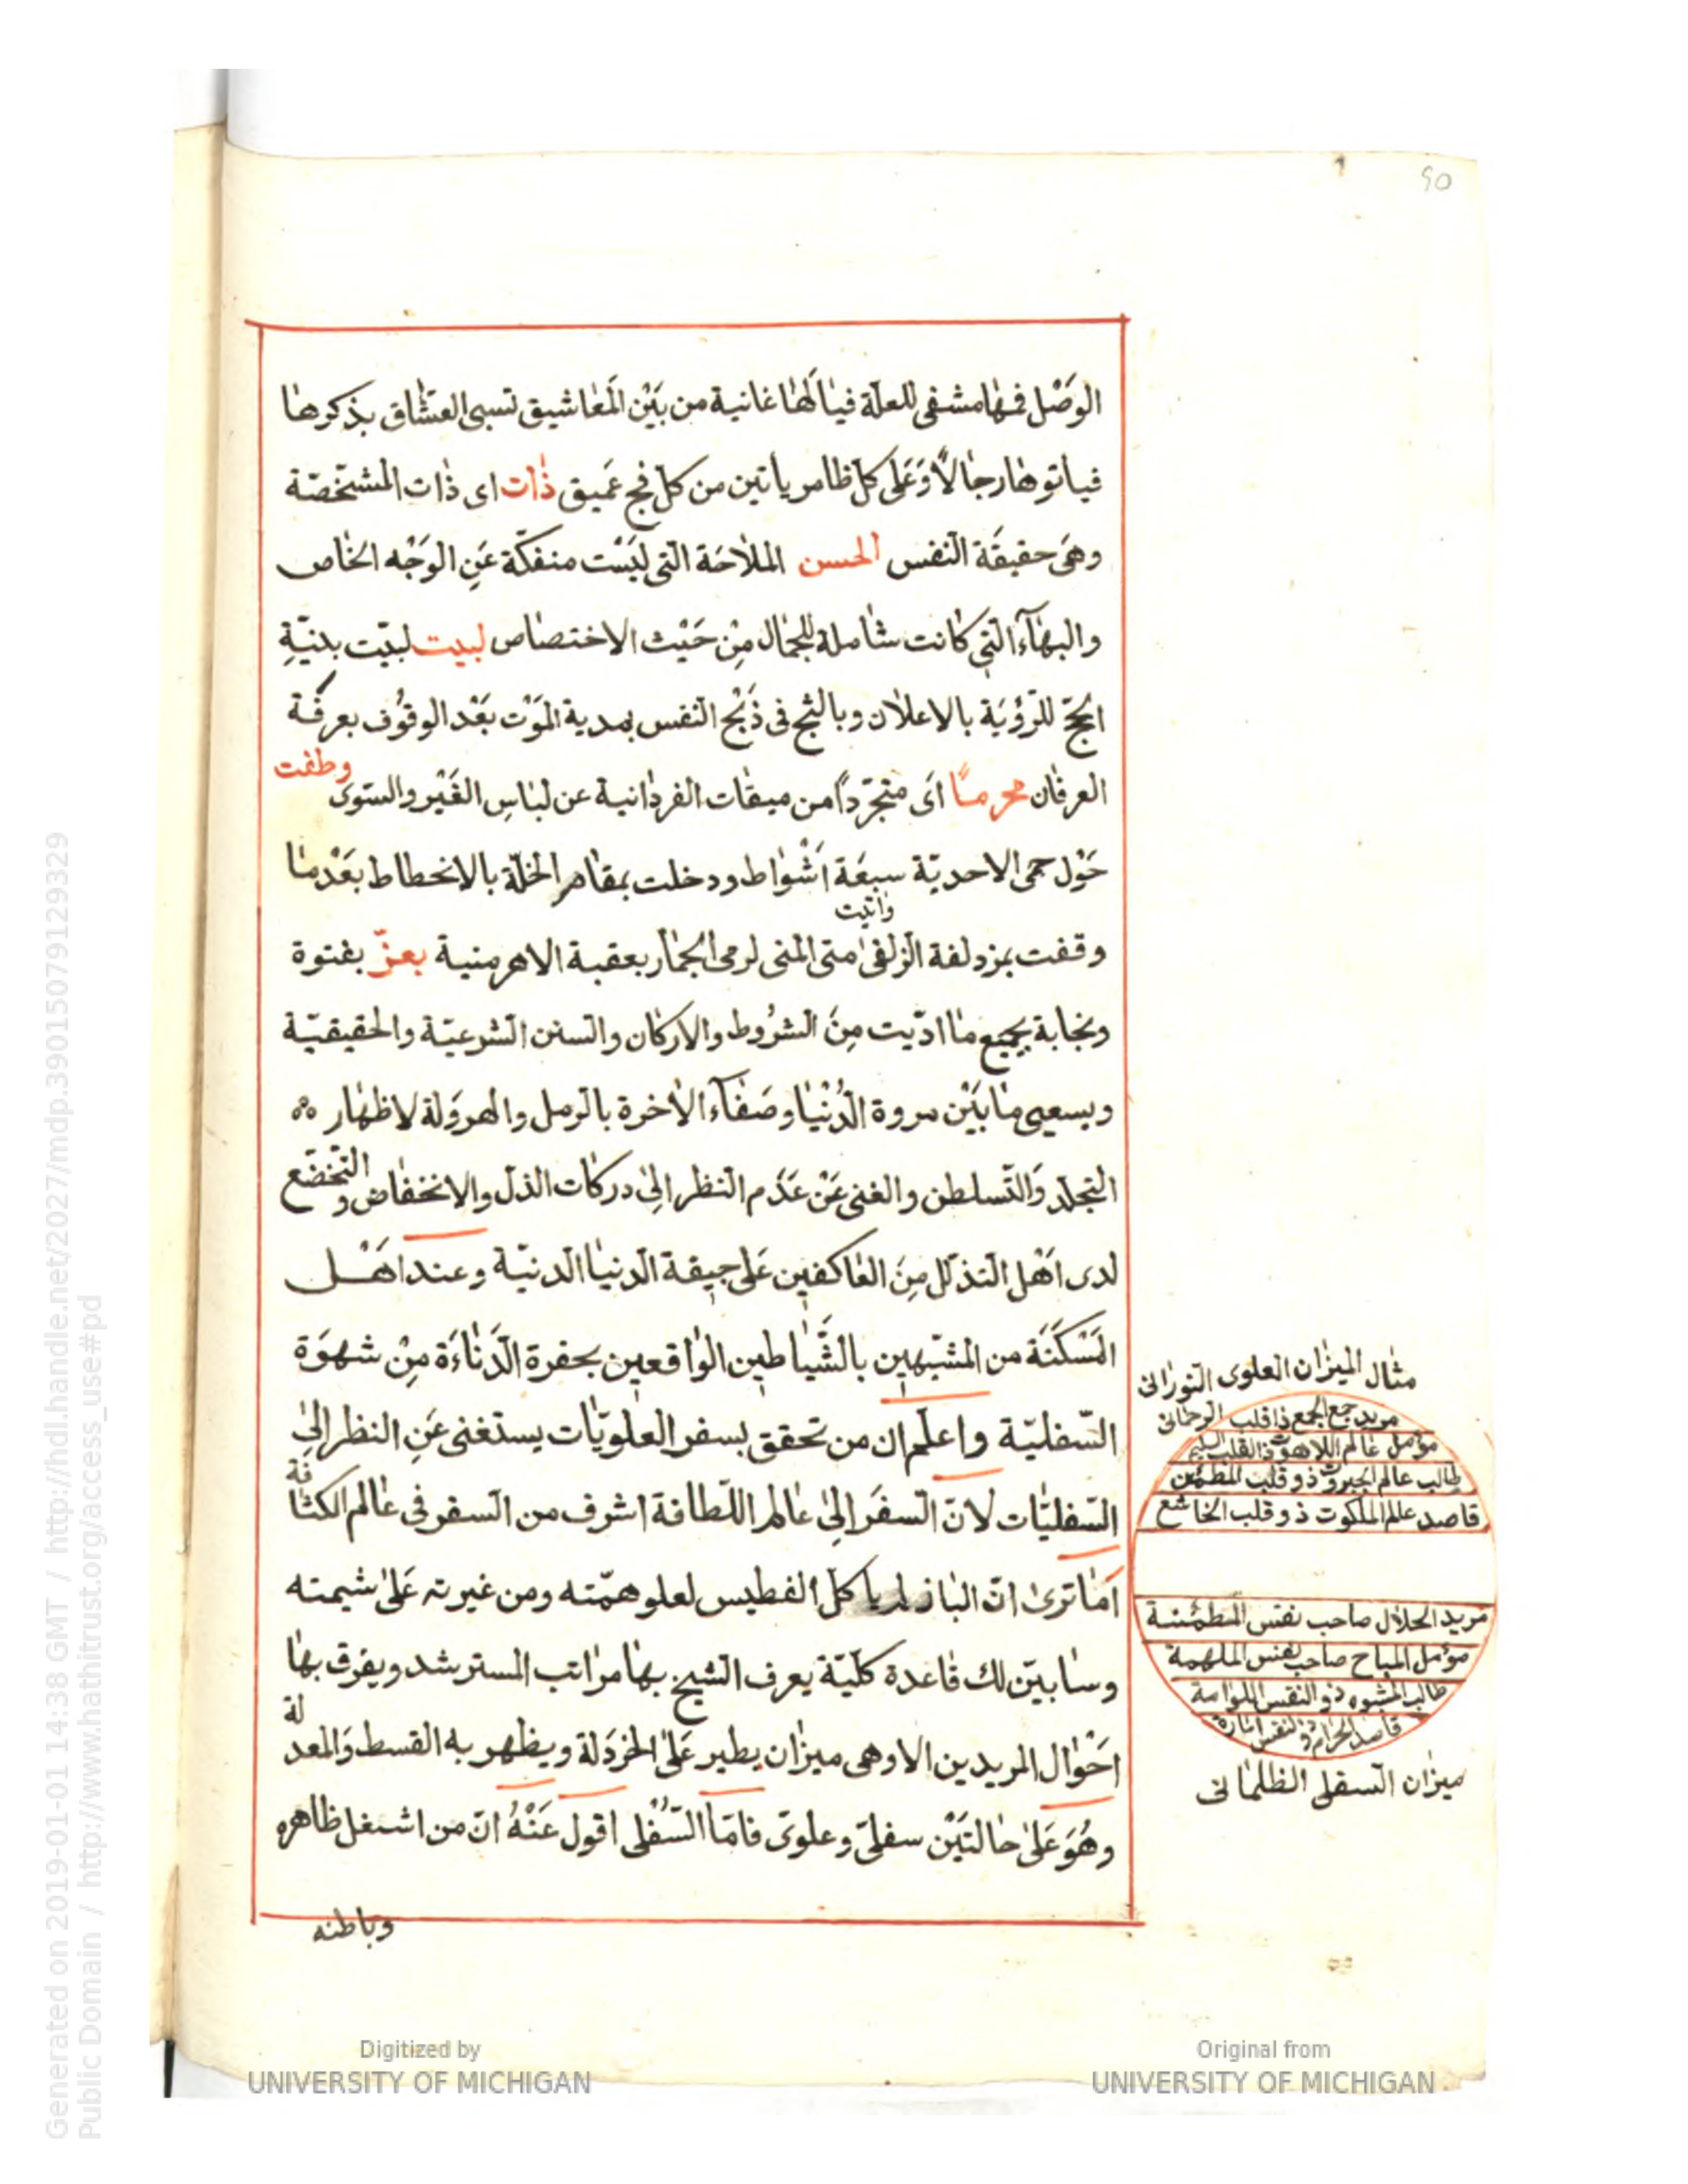 90
الوَصْل فمهٰا مشفى للعلّة فيٰا لَهٰا غانية من بَيْن المَعٰاشيق تسبى العشّاق بذكرهٰا
فيأتوهٰا رجٰالًا وَعَلى كلّ ظامر يأتين من كلّ فج عَميق ذٰات اى ذٰات المشخّصّة
وهىَ حقيقَة النّفس الحسن الملاٰحَة الّتى ليَسْت منفكّة عَنِ الوَجْه الخٰاص
والبهٰآء الّتى كٰانت شٰاملة للجمٰال مِنْ حَيْث الاختصٰاص لبيت لبيّت بنيّةِ
الحَجّ للرّؤيَة بالاعلاٰن وبالثّج فى ذَبْح النّفس بمدية المَوْت بَعْد الوقوُف بعرفَة
العرفٰان محرمًا اَى متجرّدًا من ميقٰات الفردٰانية عن لبٰاسِ الغَيْر والسّوى وطفت
حَوْل حمى الاحديّة سبعَة اَشْوٰاط ودخلت بمقٰام الخلّة بالانحطاط بعَدْمٰا
وقفت بمزدلفة الزّلفىٰ واتيت متى المنى لرمى الجمٰار بعقبة الاهرمنية بعزّ بفتوة
ونجابة بجميع مٰا ادّيت مِنَ الشرُوط والاركٰان والسّنن الشّرعيّة والحقيقيّة
ويسعى مٰابَيْن مروة الدُّنْيٰا وصَفٰآء الاٰخرة بالرّمل والهروَلة لاظهٰار
التجلّد وَالتّسلطن والغنى عَنْ عَدَم النّظر الىٰ دركٰات الذلّ والانخفٰاض والتّخضّع
لدى اَهْل التذلّل مِنَ العٰاكفين عَلى جيفة الدّنيٰا الدّنيّة وعند اهَْل
المَسْكَنَة من المشبّهين بالشَّيٰاطين الوٰاقعين بحفرة الدَّنٰاءَة مِنْ شهوَة
السّفليّة واعلَم ان من تحقّق بسفر العلويّات يستغنى عَنِ النظر الىٰ
السّفليّٰات لانّ السّفَر الىٰ عٰالم اللّطافة اشرف من السّفر فى عٰالم الكثٰافة
اَمٰا ترىٰ انّ البٰاز لم ياكل الفطيس لعلو همّته ومن غيرته عَلىٰ شيمته
وسٰابيّن لك قٰاعدة كلّيّة يعرف الشّيخ بهٰا مرٰاتب المسترشد ويفرق بهٰا
احَوْٰال المريدين الا وهى ميزٰان يطير عَلىٰ الخَردَلة ويظهر به القسط وَالمعدلة
وهُوَ عَلىٰ حٰالتَيْن سفلىّ وعلوىّ فامّا السّفْلى اقول عَنْهُ انّ من اشتغل ظاهره
وباطنه
مثٰال الميزٰان العلوى النّورٰانى
مريد جمع الجمع ذا قلب الرحمانى
مؤمل عٰالم اللاهوت ذا القلب السليم
طالب عالم الجبروت ذو قلب المطمئن
قاصد عالم الملكوت ذو قلب الخاشع
مريد الحلال صاحب نفس المطمئنة
مؤمل المباح صاحب نفس الملهمة
طالب المشبوه ذو النفس اللوامة
قاصد الحرام ذو النفس امارة
ميزٰان السّفلى الظلمٰانى
Digitized by
UNIVERSITY OF MICHIGAN
Original from
UNIVERSITY OF MICHIGAN
Generated on 2019-01-01 14:38 GMT / http://hdl.handle.net/2027/mdp.39015079129329
Public Domain / http://www.hathitrust.org/access_use#pd